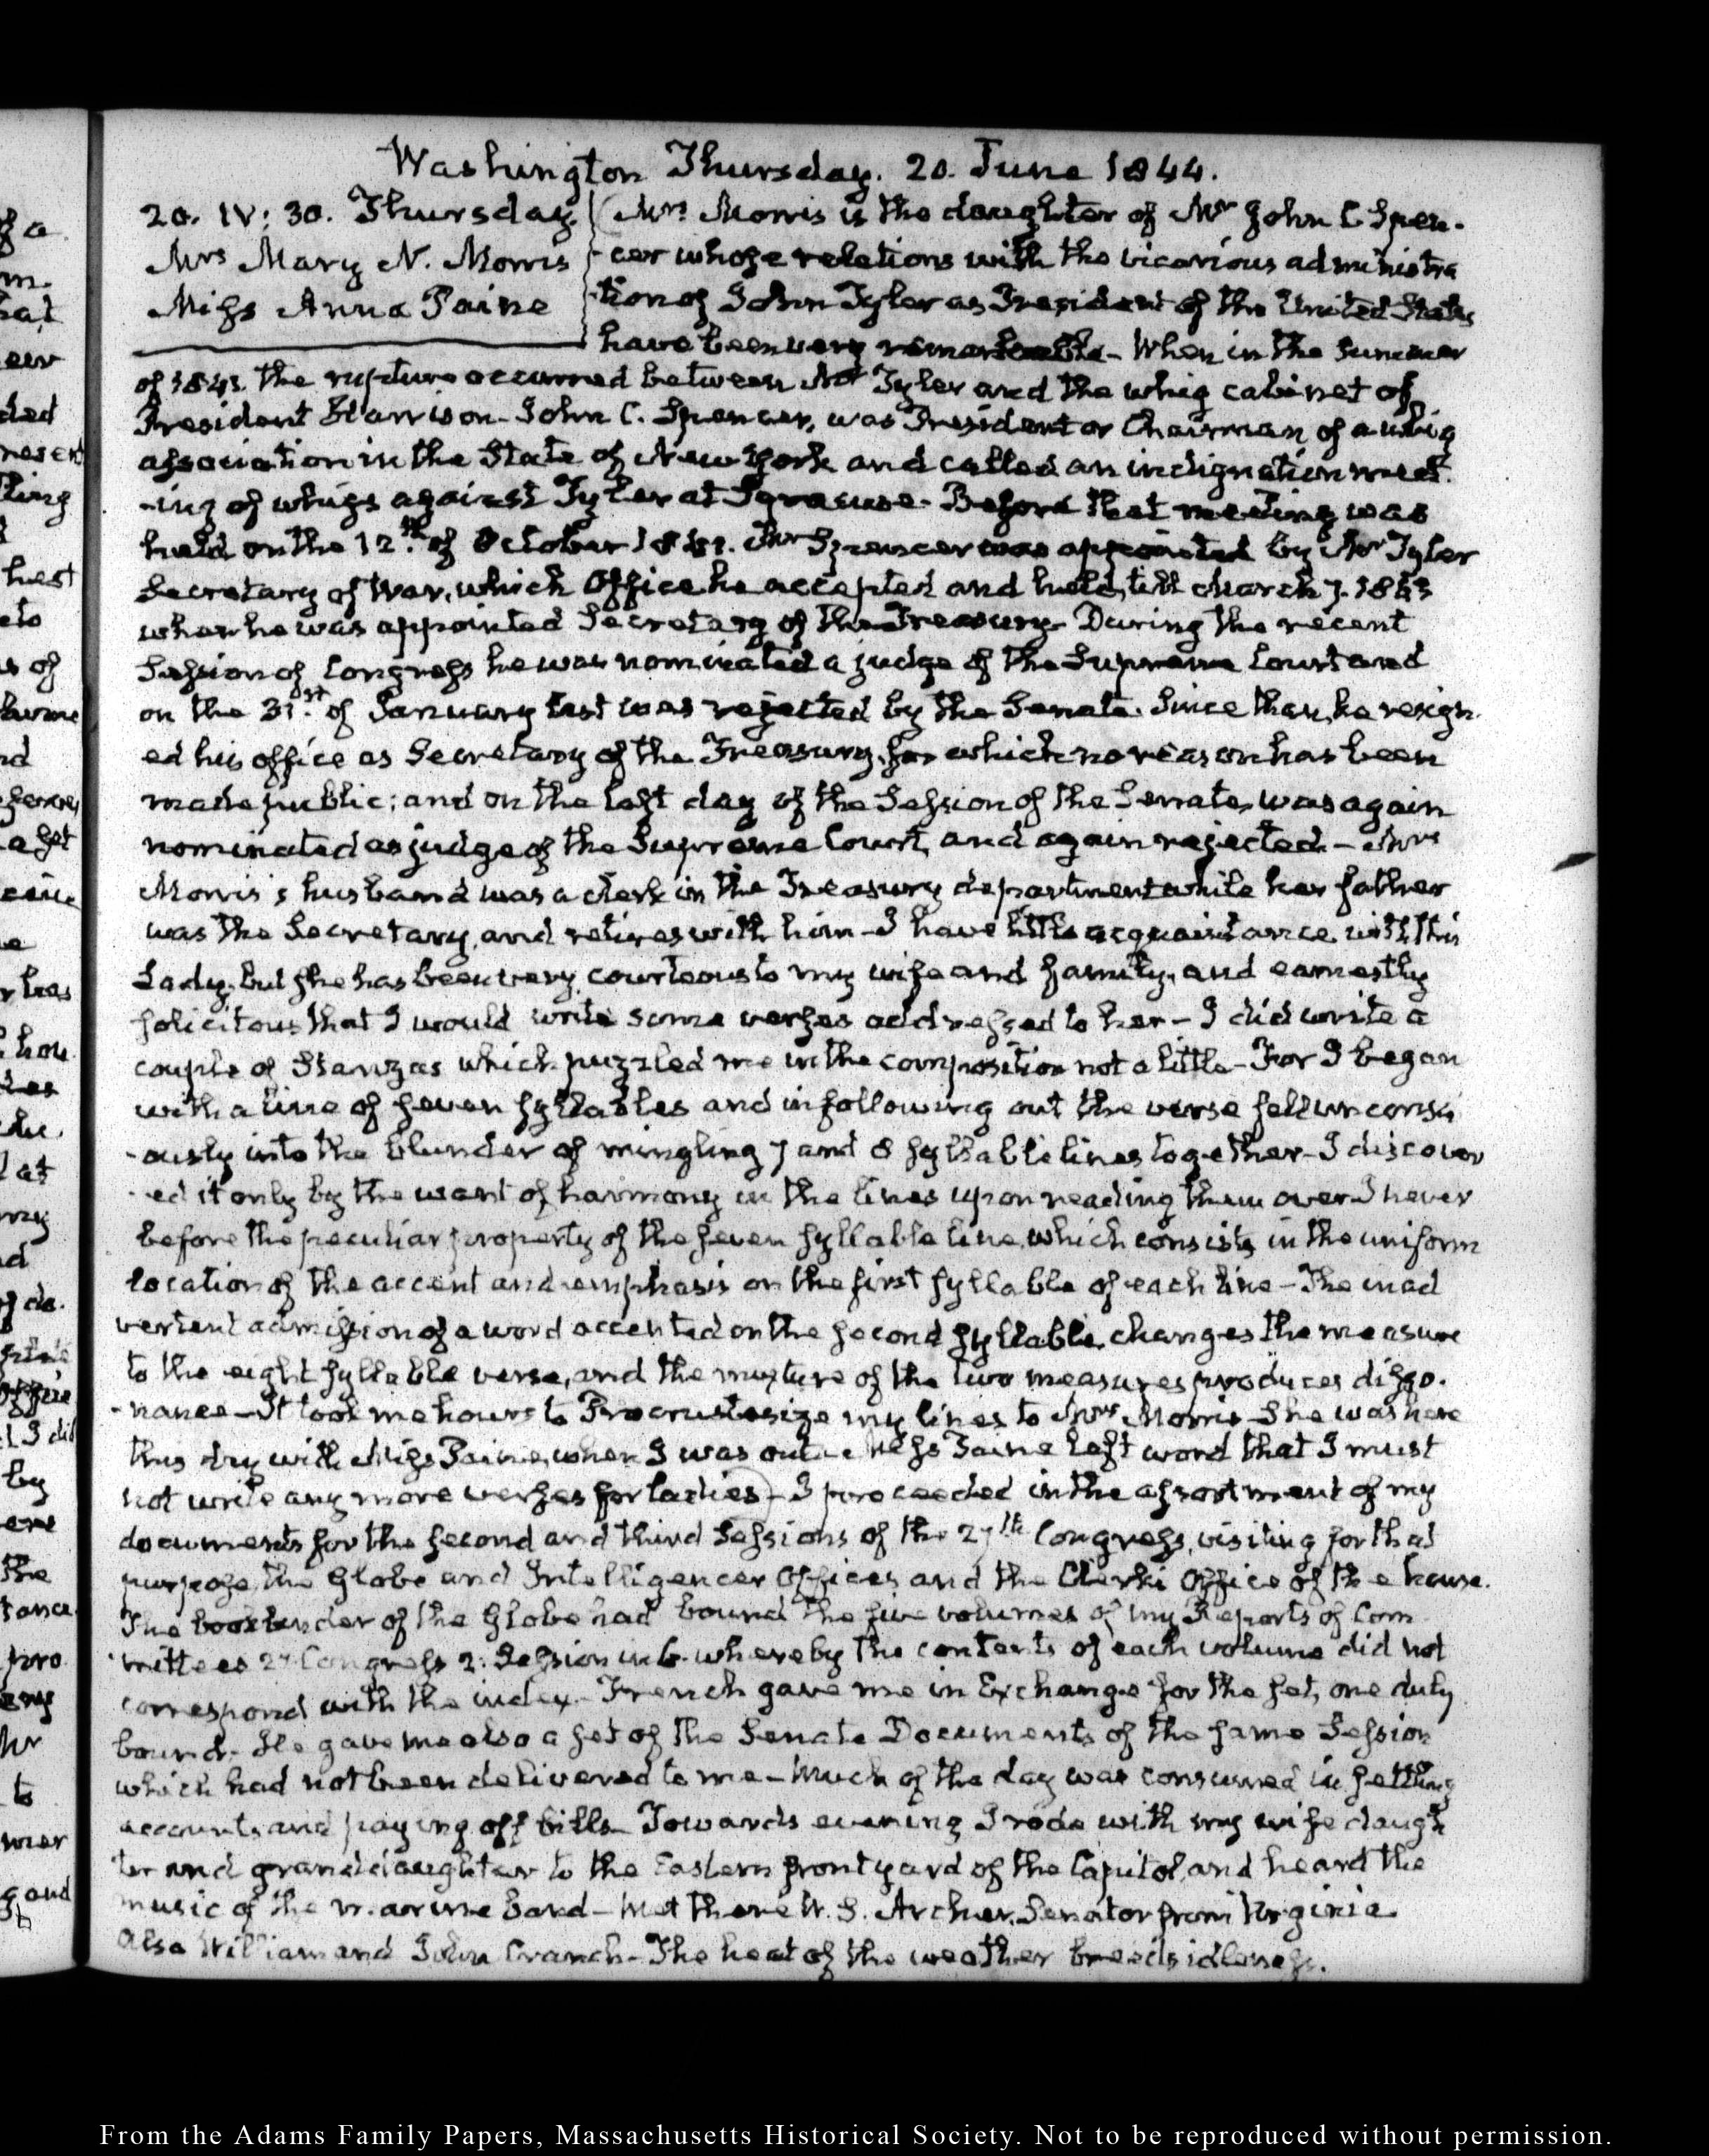 Washington Thursday. 20. June 1844.
20. IV: 30. Thursday.
Mrs Mary N. Morris
Miss Anna Paine
Mrs Morris is the daughter of Mr John C Spen-
-cer whose relations with the vicarious administra
-tion of John Tyler as President of the United States
have been very remarkable- When in the Summer
of 1841. the rupture occurred between Mr Tyler and the whig cabinet of
President Harrison- John C. Spencer, was President or Chairman of a whig
association in the State of New York and called an indignation meet-
-ing of whigs against Tyler at Syracuse- Before that meeting was
held on the 12th of October 1841. Mr Spencer was appointed by Mr Tyler
Secretary of War, which Office he accepted and held, till March 7. 1843
when he was appointed Secretary of the Treasury- During the recent
Session of Congress he was nominated a judge of the Supreme Court and
on the 31st of January last was rejected by the Senate. Since then, he resign-
ed his office as Secretary of the Treasury, for which no reason has been
made public; and on the last day of the Session of the Senate, was again
nominated as judge of the Supreme Court, and again rejected- Mrs
Morris's husband was a clerk in the Treasury department while her father
was the Secretary, and retires with him- I have little acquaintance with this
Lady, but she has been very courteous to my wife and family, and earnestly
solicitous that I would write some verses addressed to her- I did write a
couple of Stanzas which puzzled me in the composition not a little- For I began
with a line of seven syllables and in following out the verse fell unconsci
-ously into the blunder of mingling 7 and 8 syllable lines together- I discover
-ed it only by the want of harmony in the lines upon reading them over I never
before the peculiar property of the seven syllable line, which consists in the uniform
location of the accent and emphasis on the first syllable of each line- The inad
vertent admission of a word accented on the second syllable, changes the measure
to the eight syllable verse, and the mixture of the two measures produces disso-
-nance- It took me hours to Procrustesize my lines to Mrs Morris- She was here
this day with Miss Paine, when I was out- Miss Paine left word that I must
not write any more verses for ladies- I proceeded in the assortment of my
documents for the second and third Sessions of the 27th Congress, visiting for that
purpose, the Globe and Intelligencer Offices and the Clerk's Office of the house.
The bookbinder of the Globe had bound the five volumes of my Reports of Com
-mittees 27. Congress 2. Session in 6. whereby the contents of each volume did not
correspond with the index- French gave me in Exchange for the set, one duly
bound- He gave me also a set of the Senate Documents of the same Session
which had not been delivered to me- Much of the day was consumed in settling
accounts and paying off bills- Towards evening I rode with my wife daugh
ter and granddaughter to the Eastern front yard of the Capitol, and heard the
music of the marine Band- Met there W. S. Archer, Senator from Virginia
also William and John Cranch- The heat of the weather breeds idleness.
From the Adams Family Papers, Massachusetts Historical Society. Not to be reproduced without permission.